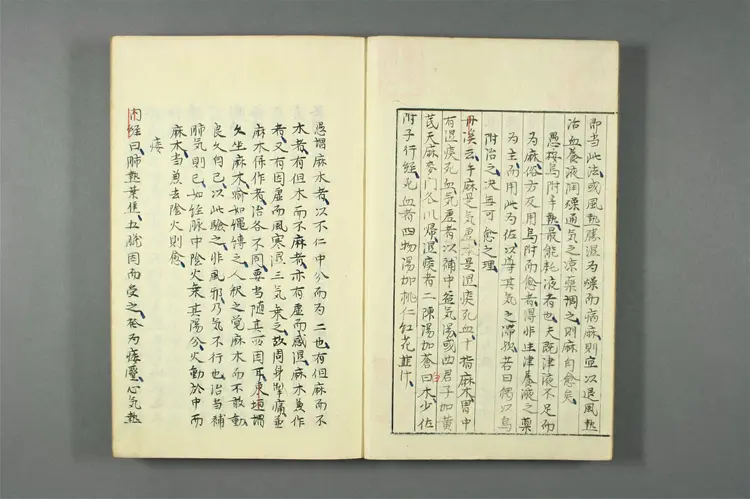 即当此法或風熱勝濕為燥而病麻則宜以退風熱
治血養液潤燥通気之凉薬調之則麻自愈矣
愚按烏附辛熱最能耗液者也夫既津液不足而
為麻俗方及用烏附而愈者得非生津養液之薬
為主附用此為佐以導其気之滞哉若曰独以烏
附治之决毎可愈之理
丹溪云手麻是気虚木是湿痰死血十指麻木胃中
有湿痰死血気虚者以補中益気湯或四君子加黄
芪天麻麥門冬川帰湿痰者二陳湯加蒼白朮少佐
附子行経死血者四物湯加桃仁紅花韮汁
愚謂麻木者以不仁中分而為二也有但麻而不
木者有但木而不麻者亦有虚而感湿麻木兼作
者又有因虚而風寒湿三気乗之故周身掣痛並
麻木併作者治各不同要当随其所因耳東垣謂
久坐麻木喻如縄縛之人釈之覚麻木而不敢動
良久自已以此験之非風邪乃気不行也治当補
肺気則已如経脉中陰火乗其陽分火動於中而
麻木当兼去陰火則愈
痿
内経曰肺熱葉焦五臓因而受之発為痿躄心気熱